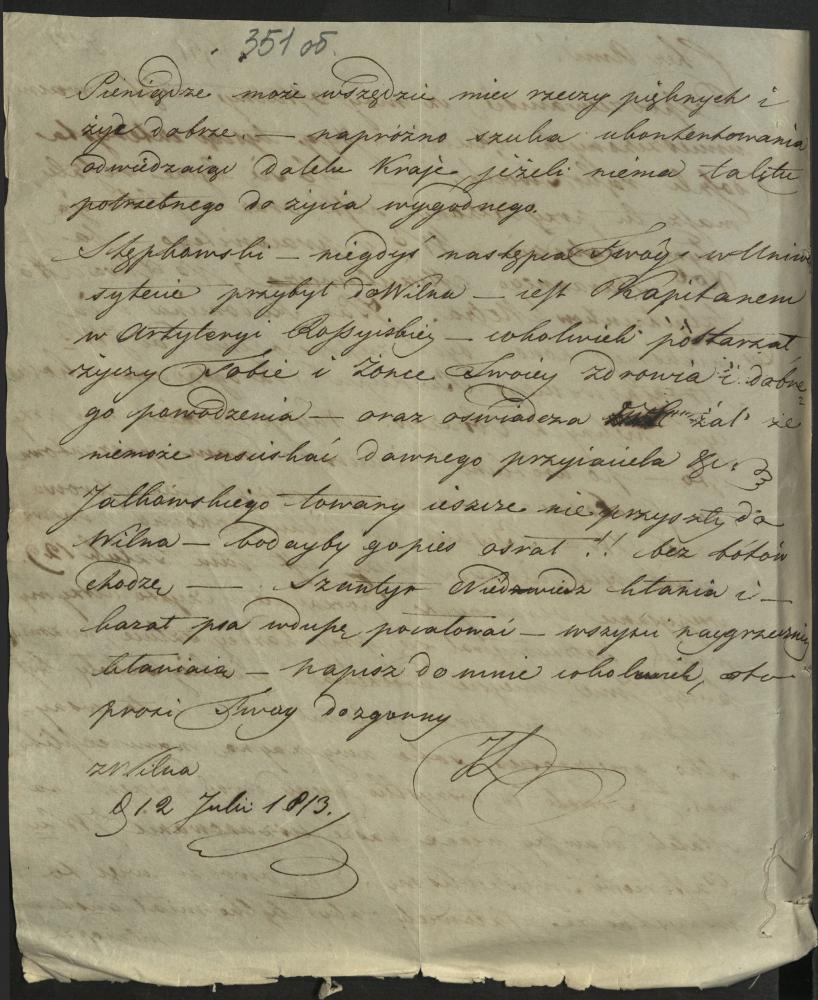 351 об.
Pieniądze może wszędzie miec rzeczy pięknych i
żyć dobrze. — napróżno szuka ukontentowania
odwiedzaiąc dalekie Kraje, jeżeli niema talętu
potrzebnego do życia wygodnego.
Stępkowski — niegdyś następca Twóy w Uniwer
sytecie przybył do Wilna — iest Kapitanem
w Artyleryi Rossyiskiey — cokolwiek postarzał
życzy Tobie i Żonce Twoiey zdrowia i dobre-
go powodzenia — oraz oswiadcza żal że
niemoże usciskać dawnego przyiaciela &c.
Jatkowskiego towary ieszcze nie przyszły do
Wilna — bodayby go pies osrał!! bez bótów
chodzę — Szantyr Niedzwiedz kłania i —
kazał psa wdupę pocałować — wszyscy naygrzeczniey
kłaniaią — napisz do mnie cokolwiek, oto
prosi Twoy dozgonny
z Wilna
d 12 Julii 1813.